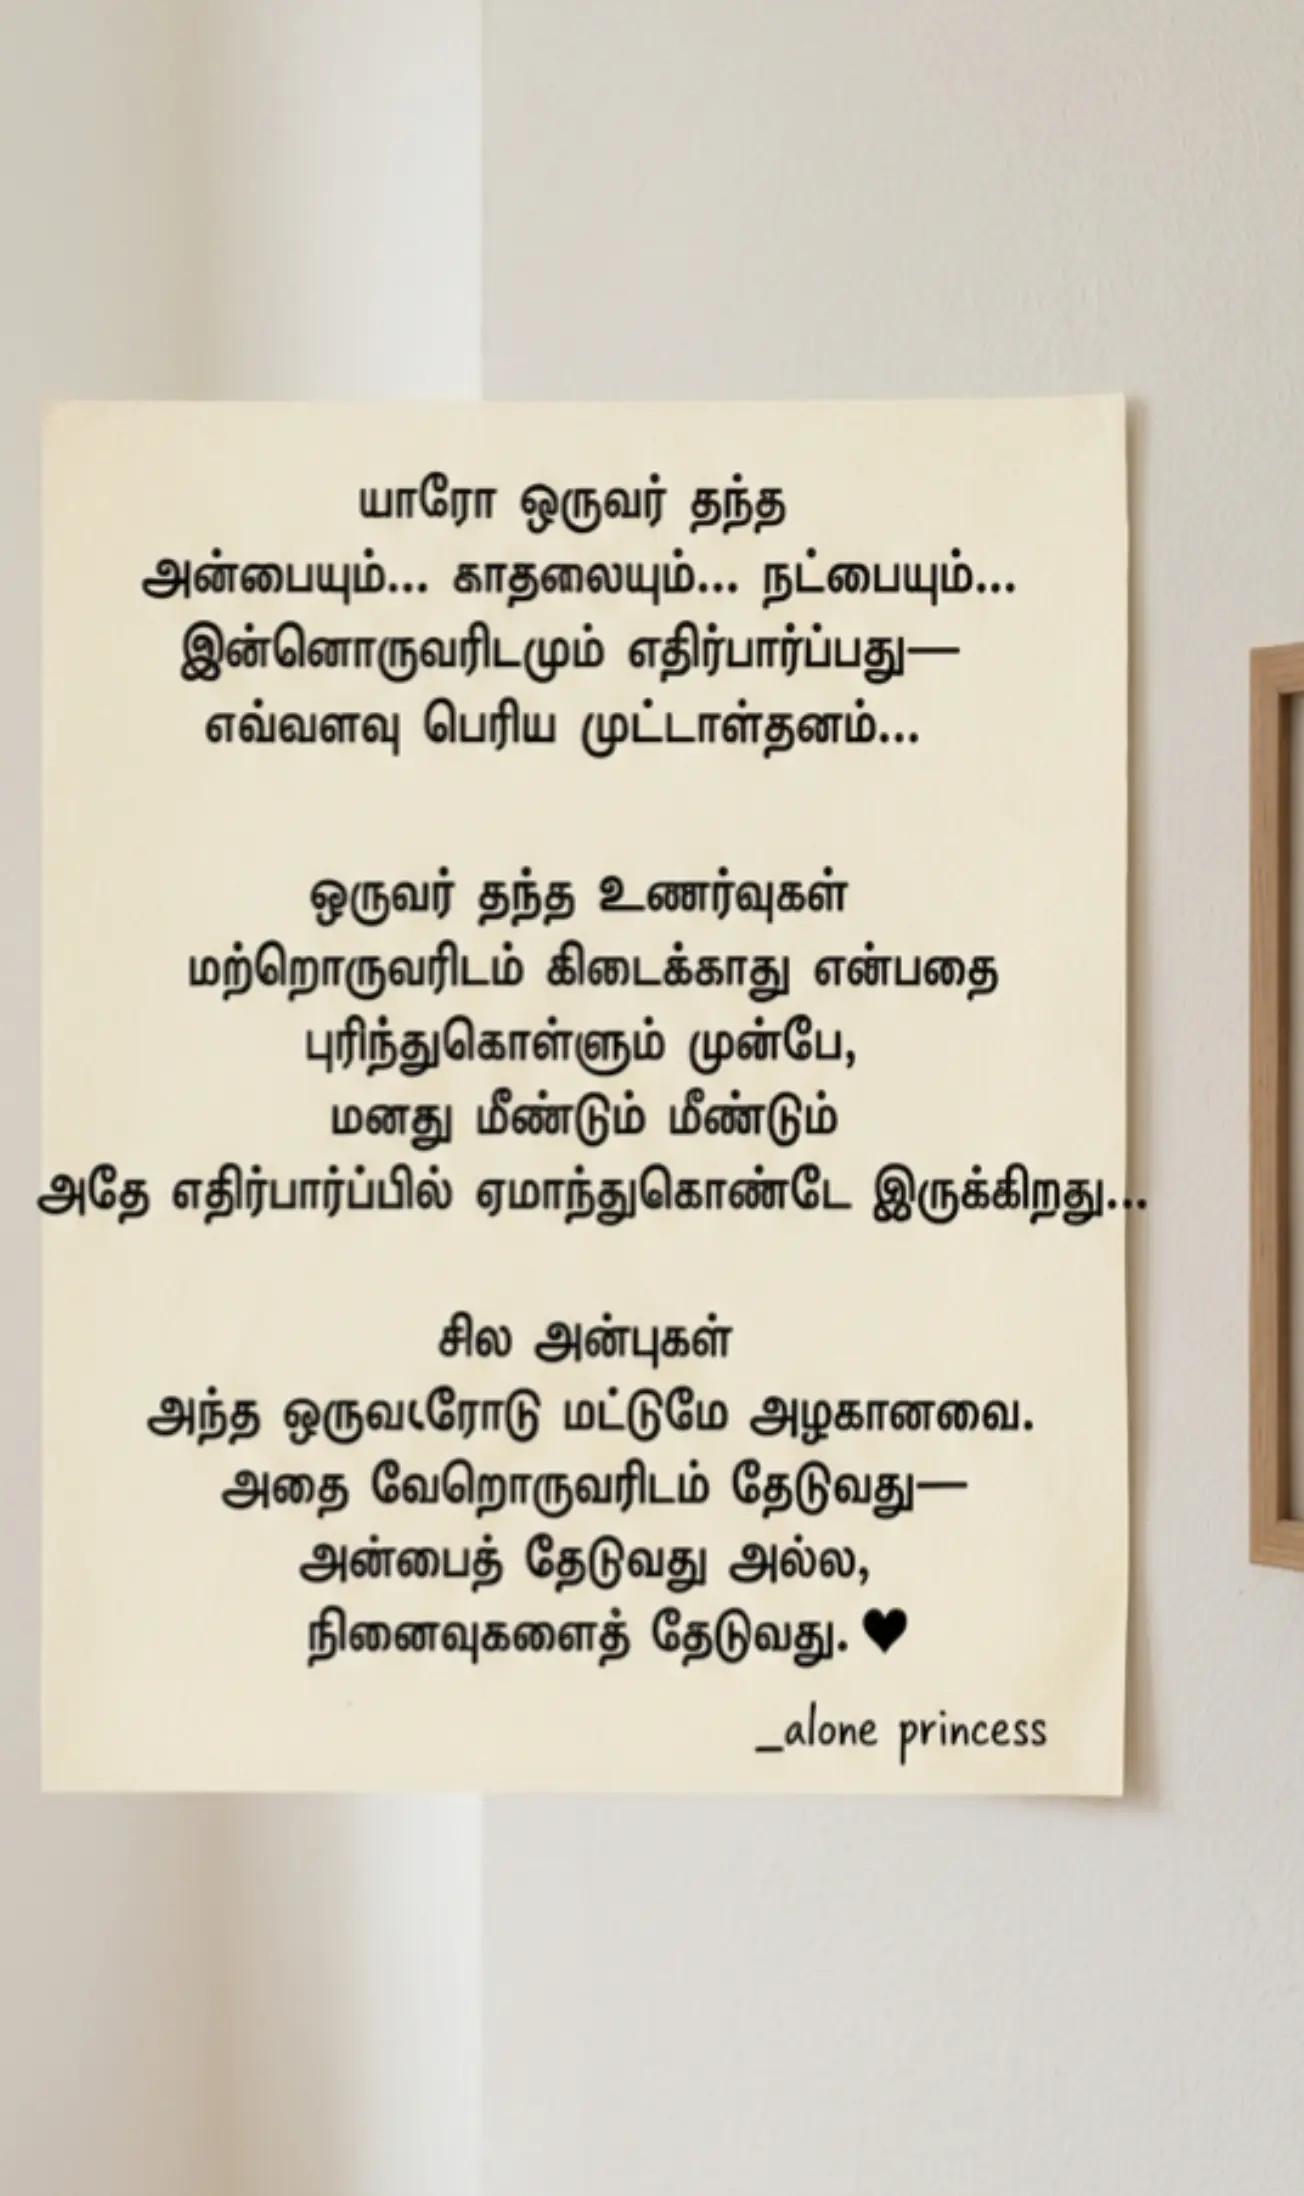 யாரோ ஒருவர் தந்த
அன்பையும்... காதலையும்... நட்பையும்...
இன்னொருவரிடமும் எதிர்பார்ப்பது—
எவ்வளவு பெரிய முட்டாள்தனம்...
ஒருவர் தந்த உணர்வுகள்
மற்றொருவரிடம் கிடைக்காது என்பதை
புரிந்துகொள்ளும் முன்பே,
மனது மீண்டும் மீண்டும்
அதே எதிர்பார்ப்பில் ஏமாந்துகொண்டே இருக்கிறது...
சில அன்புகள்
அந்த மட்டுமே அழகானவை.
அதை வேறொருவரிடம் தேடுவது—
அன்பைத் தேடுவது அல்ல,
நினைவுகளைத் தேடுவது. ♥
_alone princess